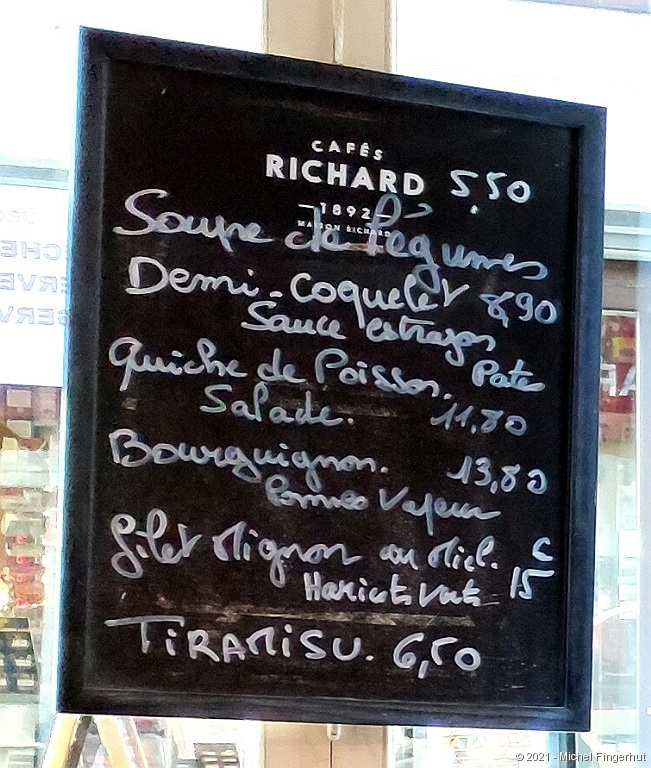 CAFÉS
RICHARD
5,50
—1892—
MAISON RICHARD
Soupe de légumes
Demi-coquelet 8,90
Sauce estragon
Pates
Quiche de Poisson.
Salade. 11,80
Bourguignon. 13,80
Pommes Vapeur
filet Mignon au Miel. €
Haricots Verts 15
TiRAMiSU. 6,50
CHE
ERVE
SERV
© 2021 - Michel Fingerhut